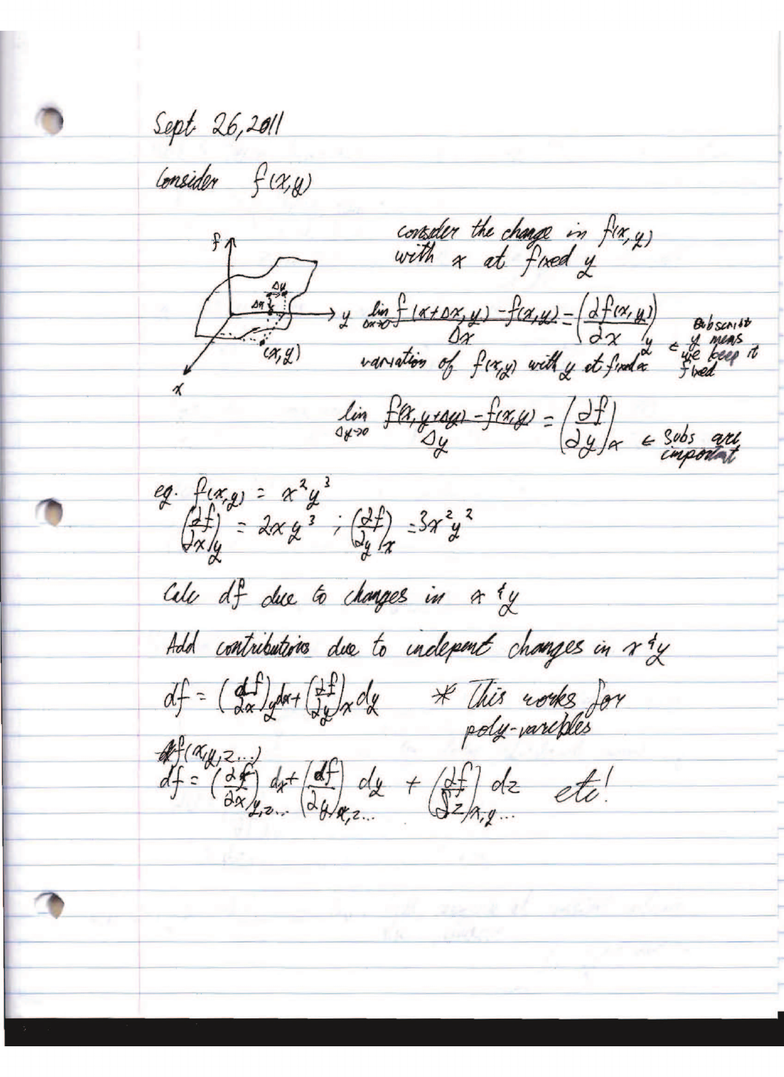 Sept. 26, 2011
Consider f(x,y)
consider the change in f(x,y)
with x at fixed y
f
Δy
Δx
y
(x,y)
x
lim Δx→0 (f(x+Δx,y) - f(x,y))/Δx = (∂f(x,y)/∂x)_y
← Subscript
y means
we keep it
fixed
variation of f(x,y) with y at fixed x
lim Δy→0 (f(x,y+Δy) - f(x,y))/Δy = (∂f/∂y)_x ← Subs are
important
eg. f(x,y) = x²y³
(∂f/∂x)_y = 2xy³ ; (∂f/∂y)_x = 3x²y²
Calc df due to changes in x & y
Add contributions due to indepent changes in x & y
df = (∂f/∂x)_y dx + (∂f/∂y)_x dy * This works for
poly-varibles
f(x,y,z...)
df = (∂f/∂x)_y,z... dx + (∂f/∂y)_x,z... dy + (∂f/∂z)_x,y... dz etc!